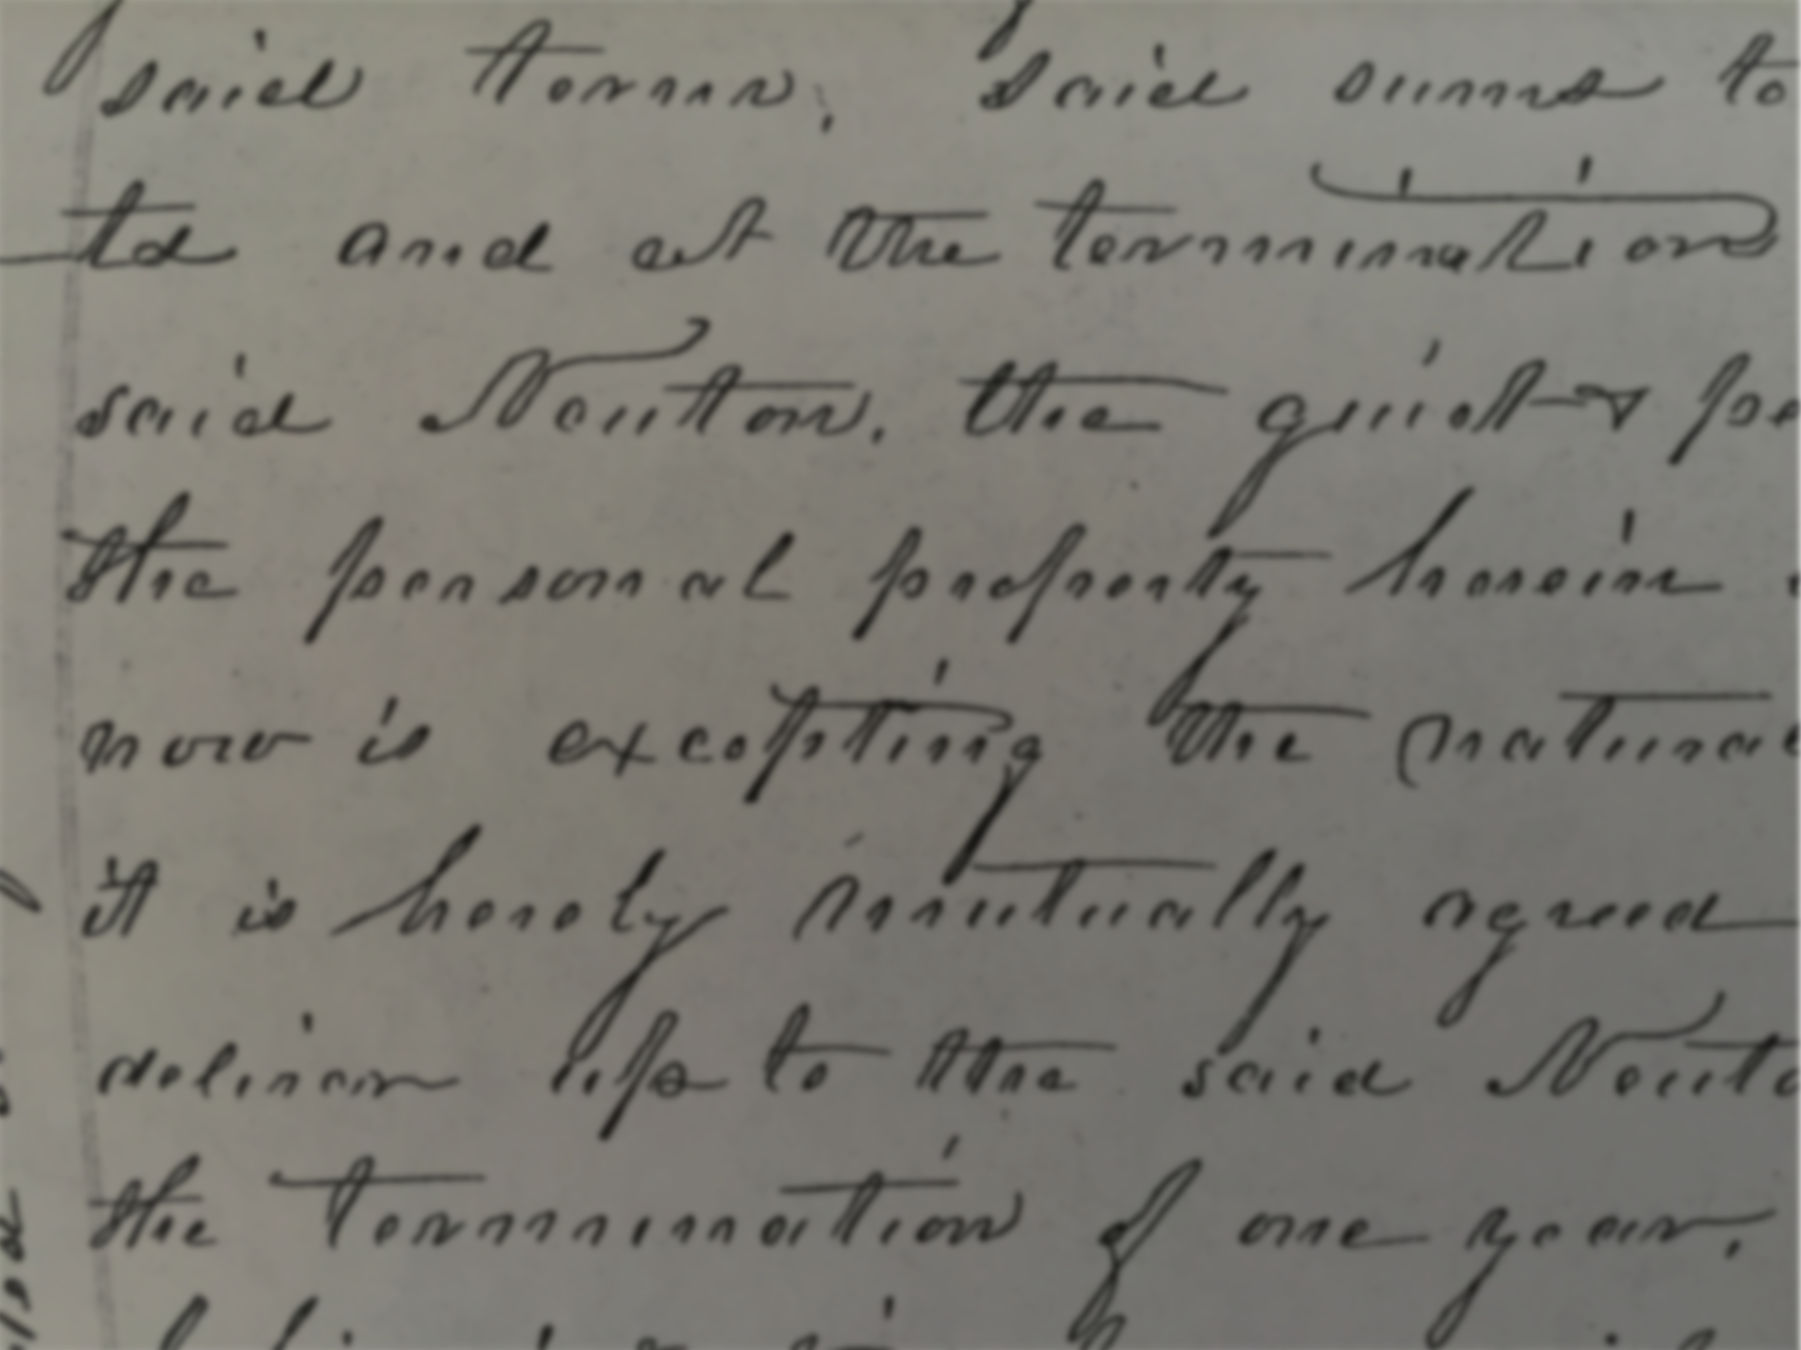 said term, said sums to
to and at the termination
said Newton, the quiet & pe
the personal property herein
now is excepting the natural
it is hereby mutually agreed
deliver up to the said Newto
the termination of one year,